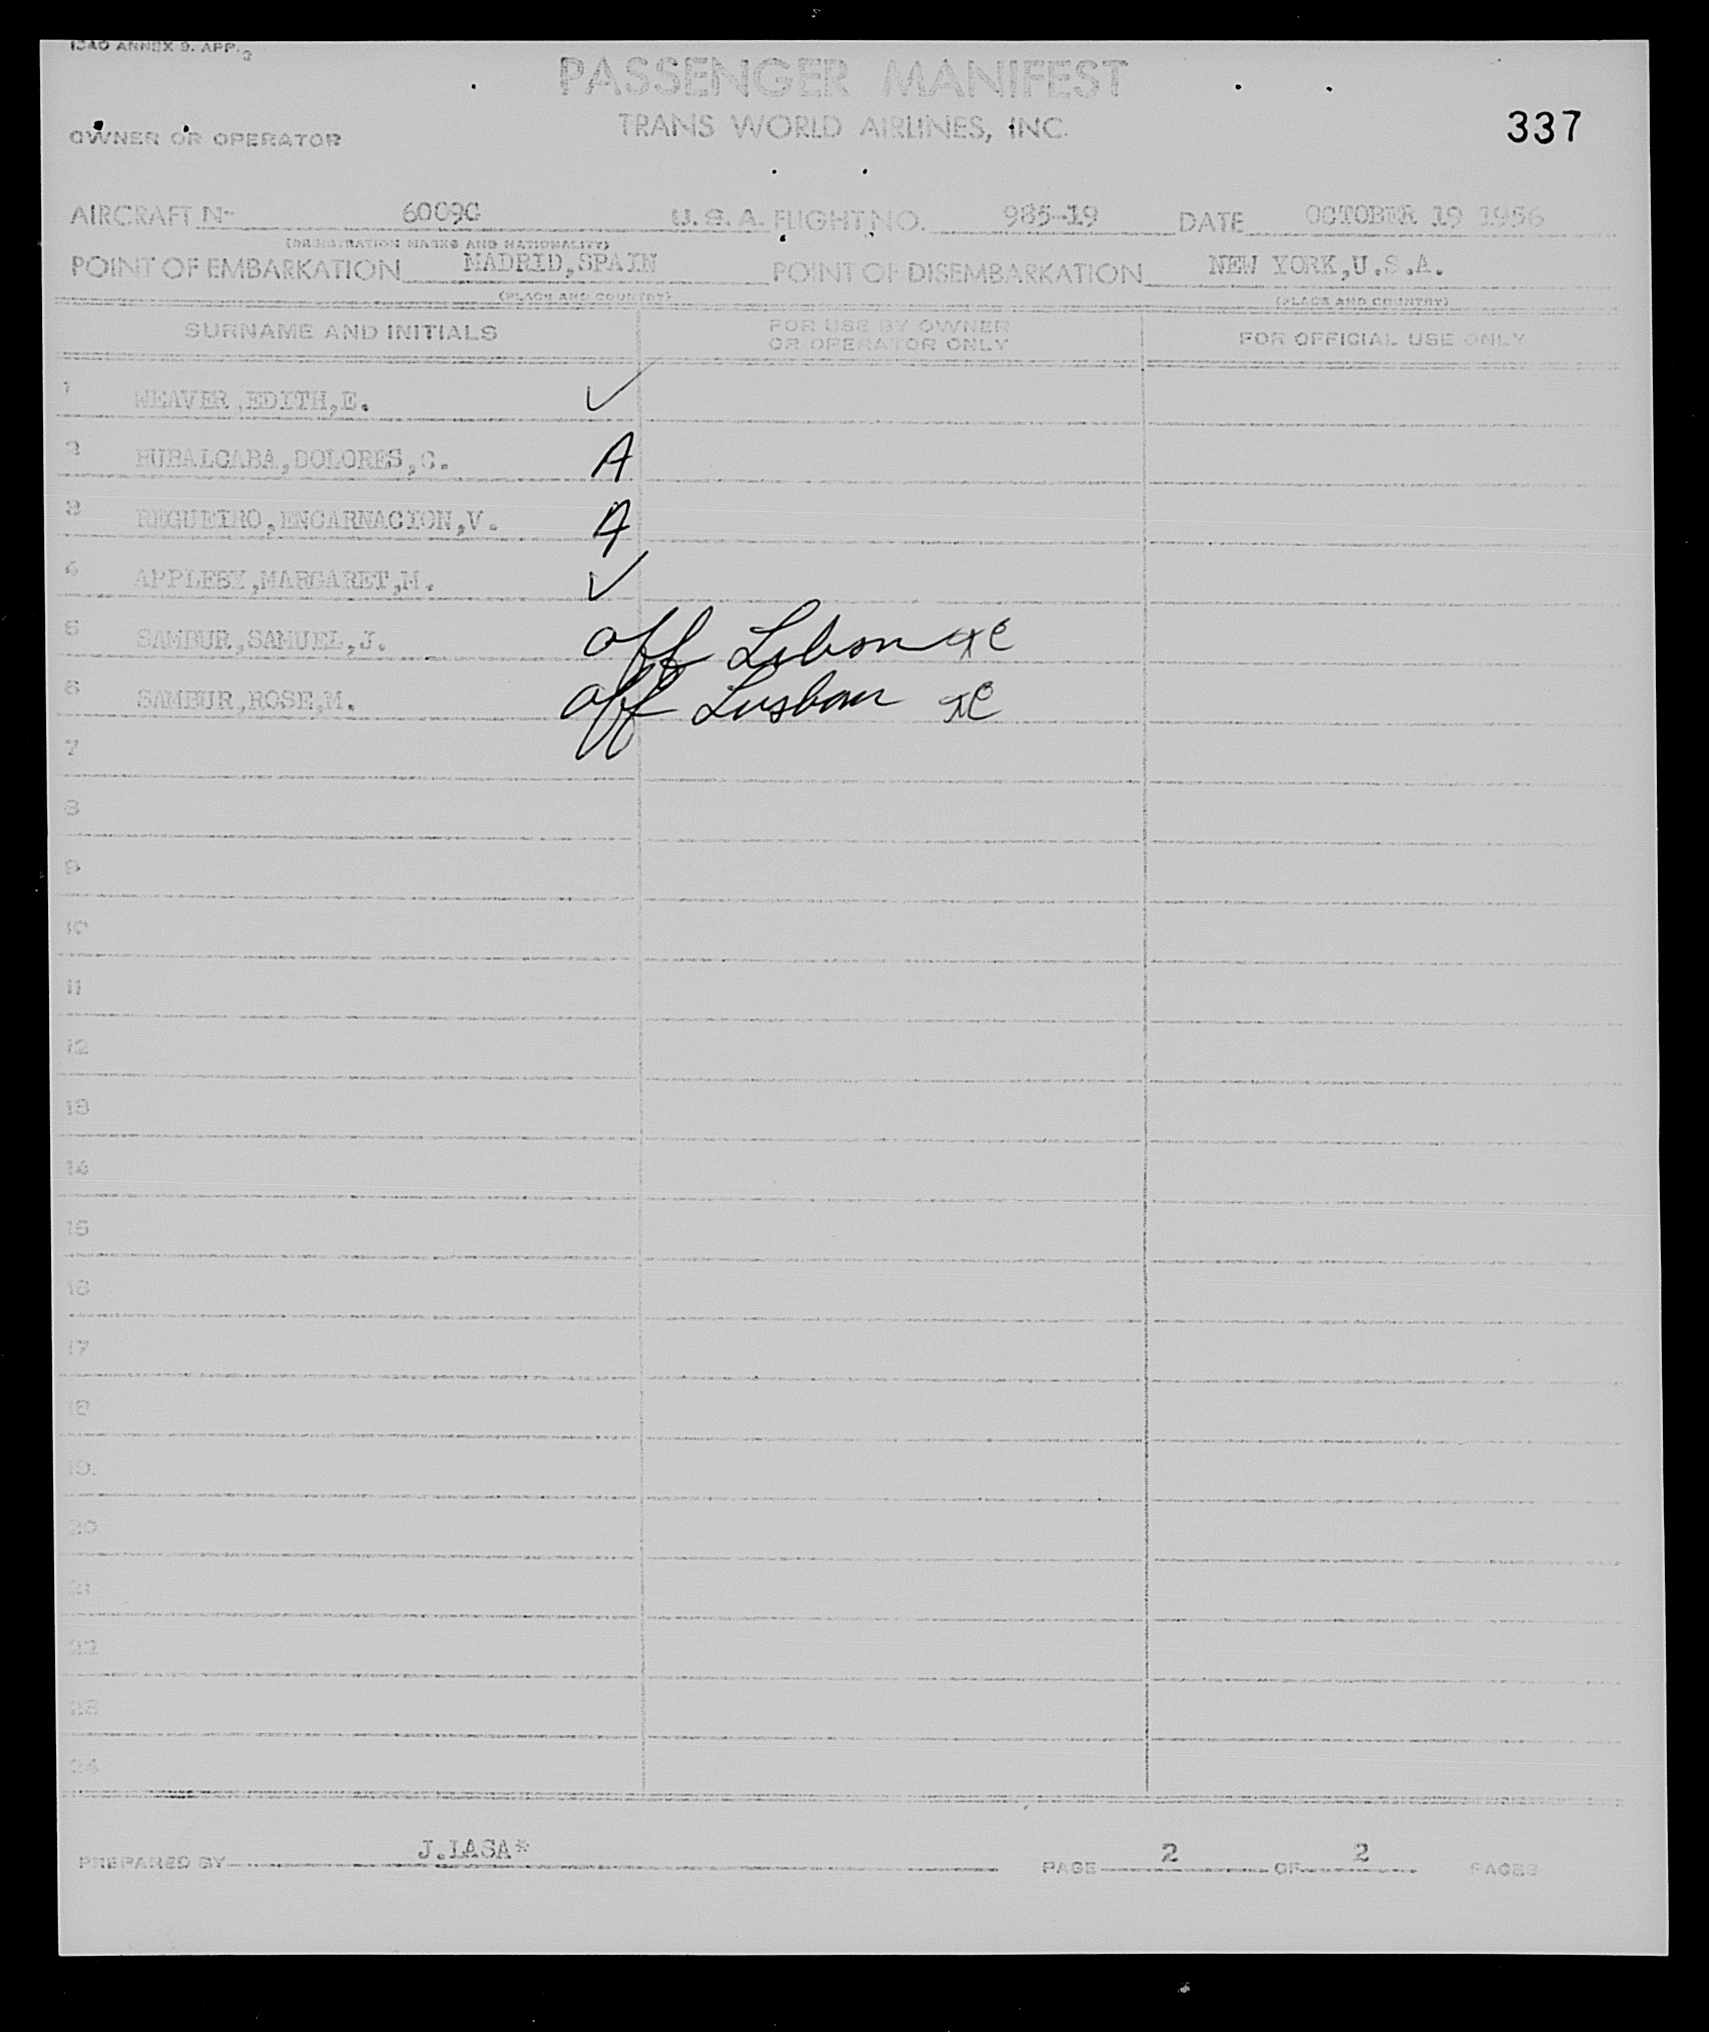 ICAO ANNEX 9. APP. 3
PASSENGER MANIFEST
OWNER OR OPERATOR
TRANS WORLD AIRLINES, INC.
337
AIRCRAFT No U.S.A. FLIGHT NO. 985-19 DATE OCTOBER 19 1956
(REGISTRATION MARKS AND NATIONALITY)
POINT OF EMBARKATION MADRID,SPAIN POINT OF DISEMBARKATION NEW YORK,U.S.A.
(PLACE AND COUNTRY) (PLACE AND COUNTRY)
SURNAME AND INITIALS FOR USE BY OWNER OR OPERATOR ONLY FOR OFFICIAL USE ONLY
1 WEAVER,EDITH,E. ✓
2 RUBALCABA,DOLORES,C. A
3 REGUEIRO,ENCARNACION,V. A
4 APPLEBY,MARGARET,M. ✓
5 SAMBUR,SAMUEL,J. off Lisbon
6 SAMBUR,ROSE,M. off Lisbon
7
8
9
10
11
12
13
14
15
16
17
18
19
20
21
22
23
24
PREPARED BY J.LASA* PAGE 2 OF 2 PAGES